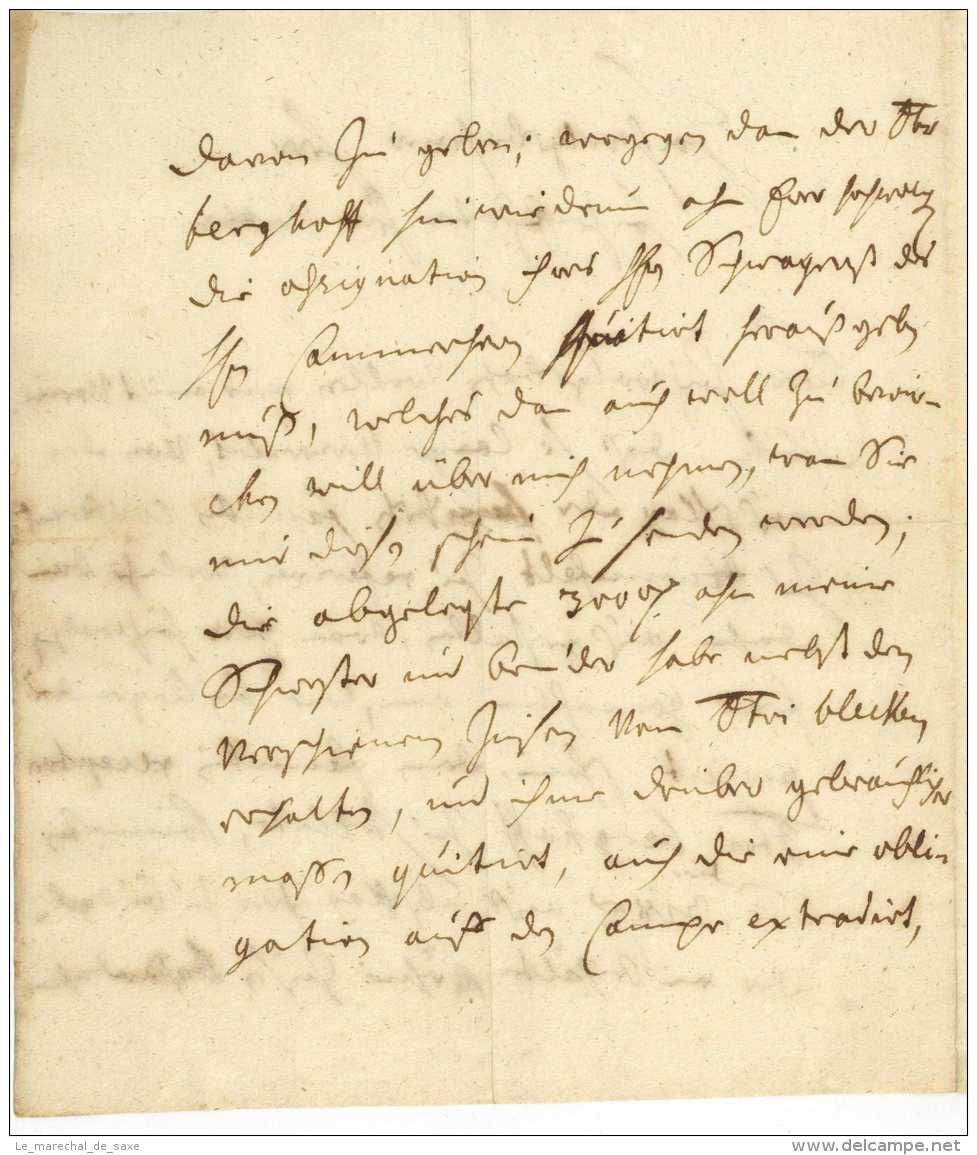 davon zu geben; wogegen dan der Obr
berghoff hin wiederum ahn Ewr hochwolg
die assignation ihres Hhn Schwagerß des
Hhn Cammerhern quitirt heraußgeben
muß, welches dan auch woll zu bewir-
cken will über mich nehmen, wan Sie
mir diesen schein zu senden werden;
die abgelegte 3000 ahn meine
Schwester und bruder habe nebst den
verschienenen Zinsen vom blecken
erhalten, und ihme drüber gebräuchlicher
maßen quitirt, auch die eine obli-
gation auff den Campe extradirt,
Le_marechal_de_saxe
www.delcampe.net